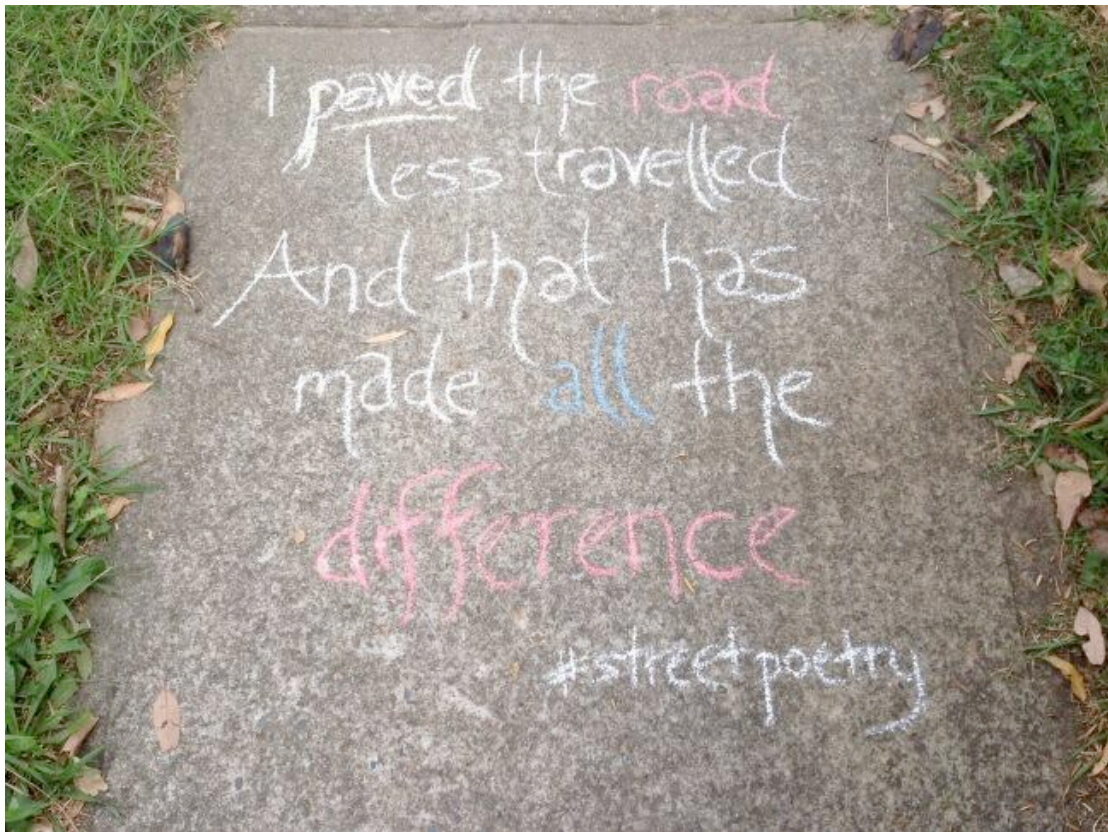 I paved the road
less travelled
And that has
made all the
difference
#streetpoetry